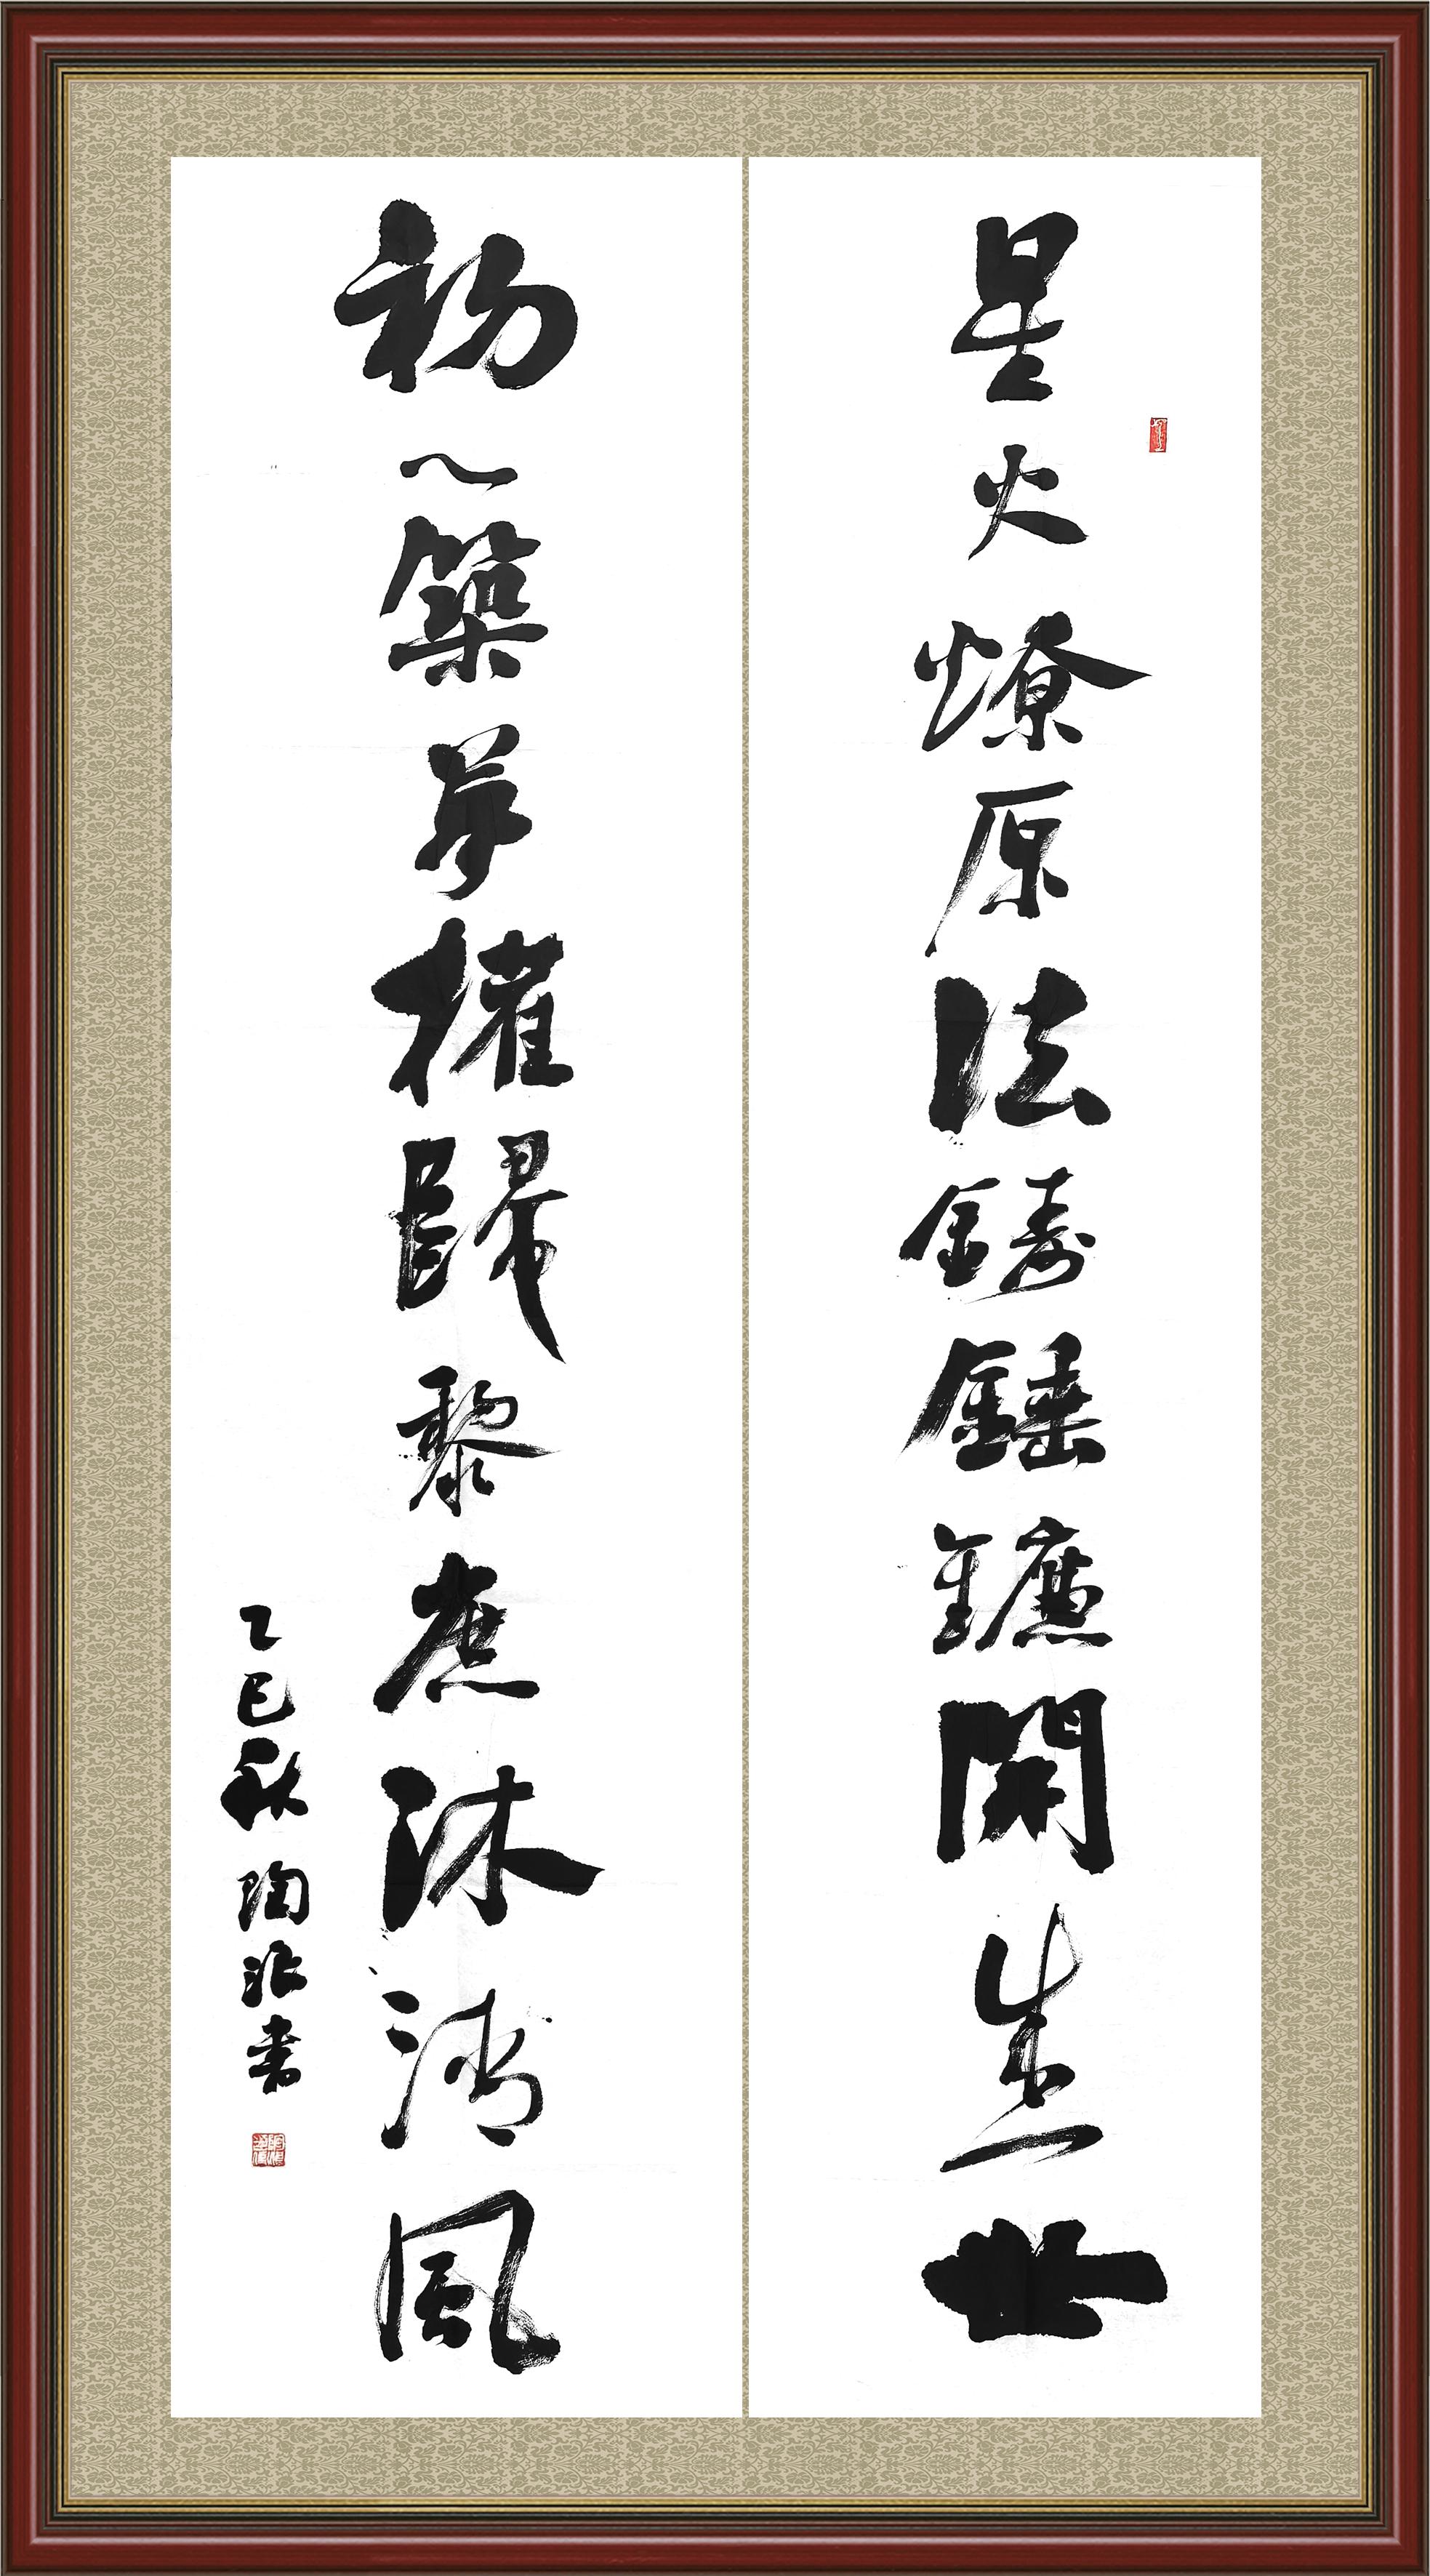 星火燎原法鑄錘鐮開生世
初心築夢權歸黎庶沐清風
乙巳秋 陶 書